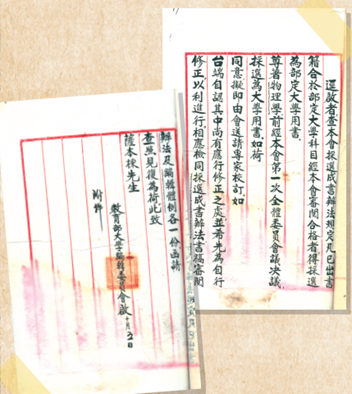 逕啟者查本會採選成書辦法規定凡已出書
籍合於部定大學科目經本會審閱合格者得採選
為部定大學用書
尊著物理學前經本會第一次全體委員會議決議
採選為大學用書如荷
同意擬即由會送請專家校訂如
台端自認其中尚有應行修正之處並希先為自行
修正以利進行相應檢同採選成書辦法書稿審閱
辦法及編輯體例各一份函請
查照見復為荷此致
薩本棟先生
附件
教育部大學編輯委員會啟十月 日